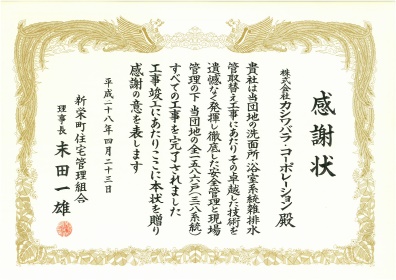 感謝状
株式会社カシワバラ・コーポレーション殿
貴社は当団地の洗面所浴室系統雑排水
管取替え工事にあたりその卓越した技術を
遺憾なく発揮し徹底した安全管理と現場
管理の下当団地の全一五八六戸(三八系統)
すべての工事を完了されました
工事竣工にあたりここに本状を贈り
感謝の意を表します
平成二十八年四月二十三日
新栄町住宅管理組合
理事長 末田一雄